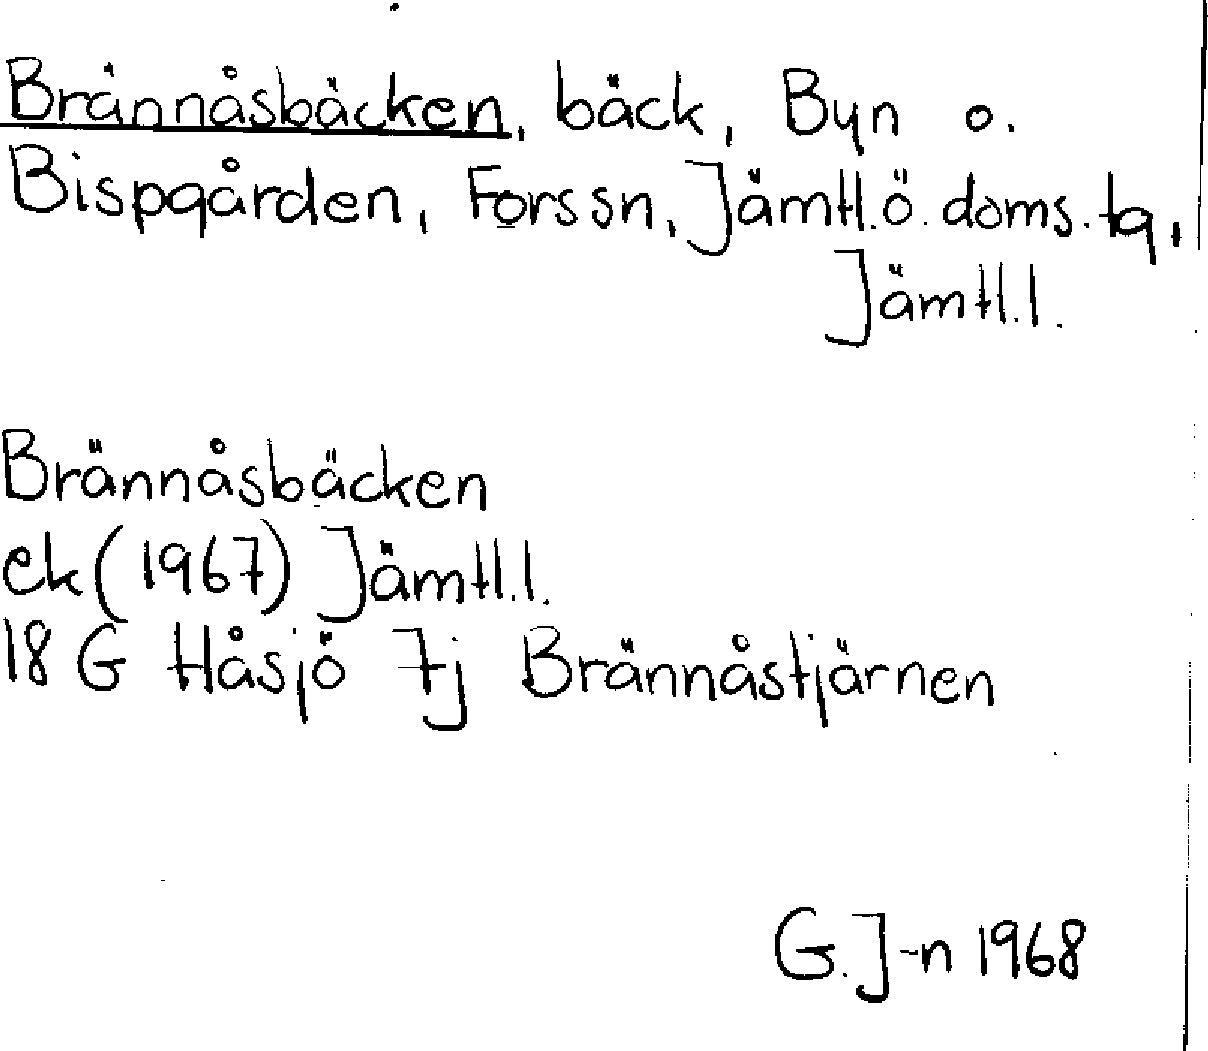 Brännåsbäcken, bäck, Byn o.
Bispgården, Fors sn, Jämtl.ö.doms.tg,
Jämtl.l.
Brännåsbäcken
ek(1967) Jämtl.l.
18 G Håsjö 7j Brännåstjärnen
G.J-n 1968